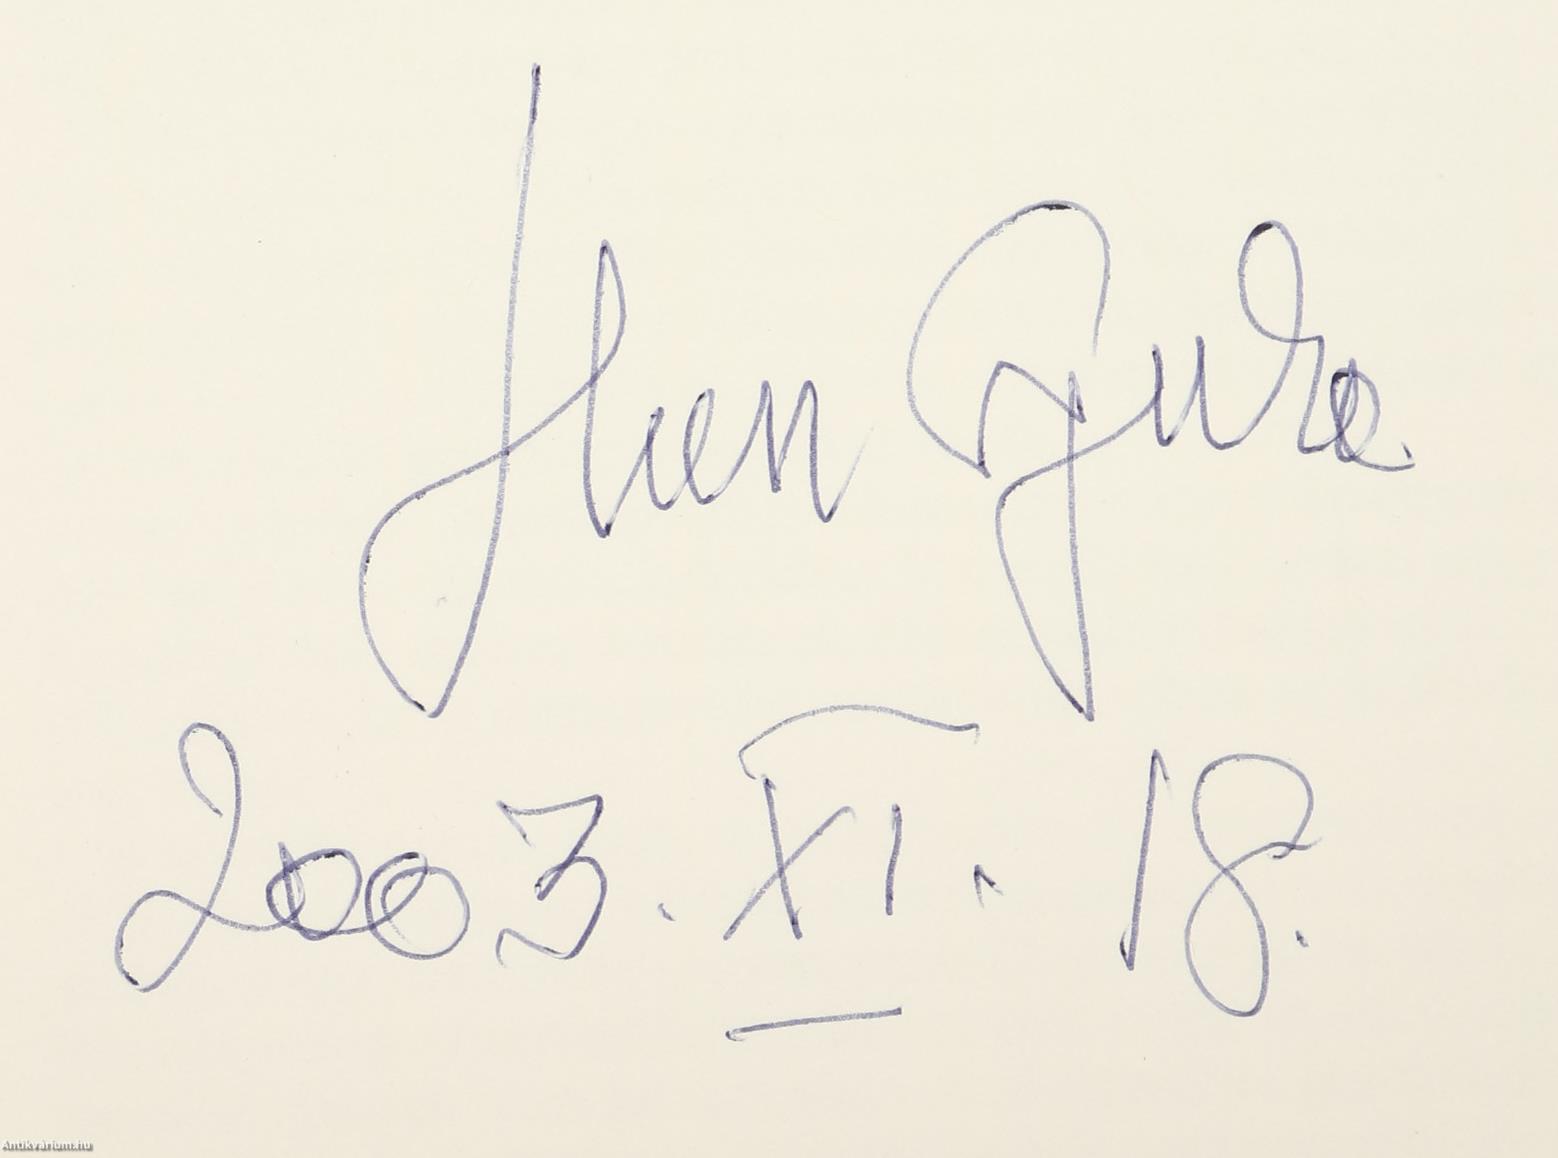 Gyula
2003. XI. 18.
Antikvárium.hu